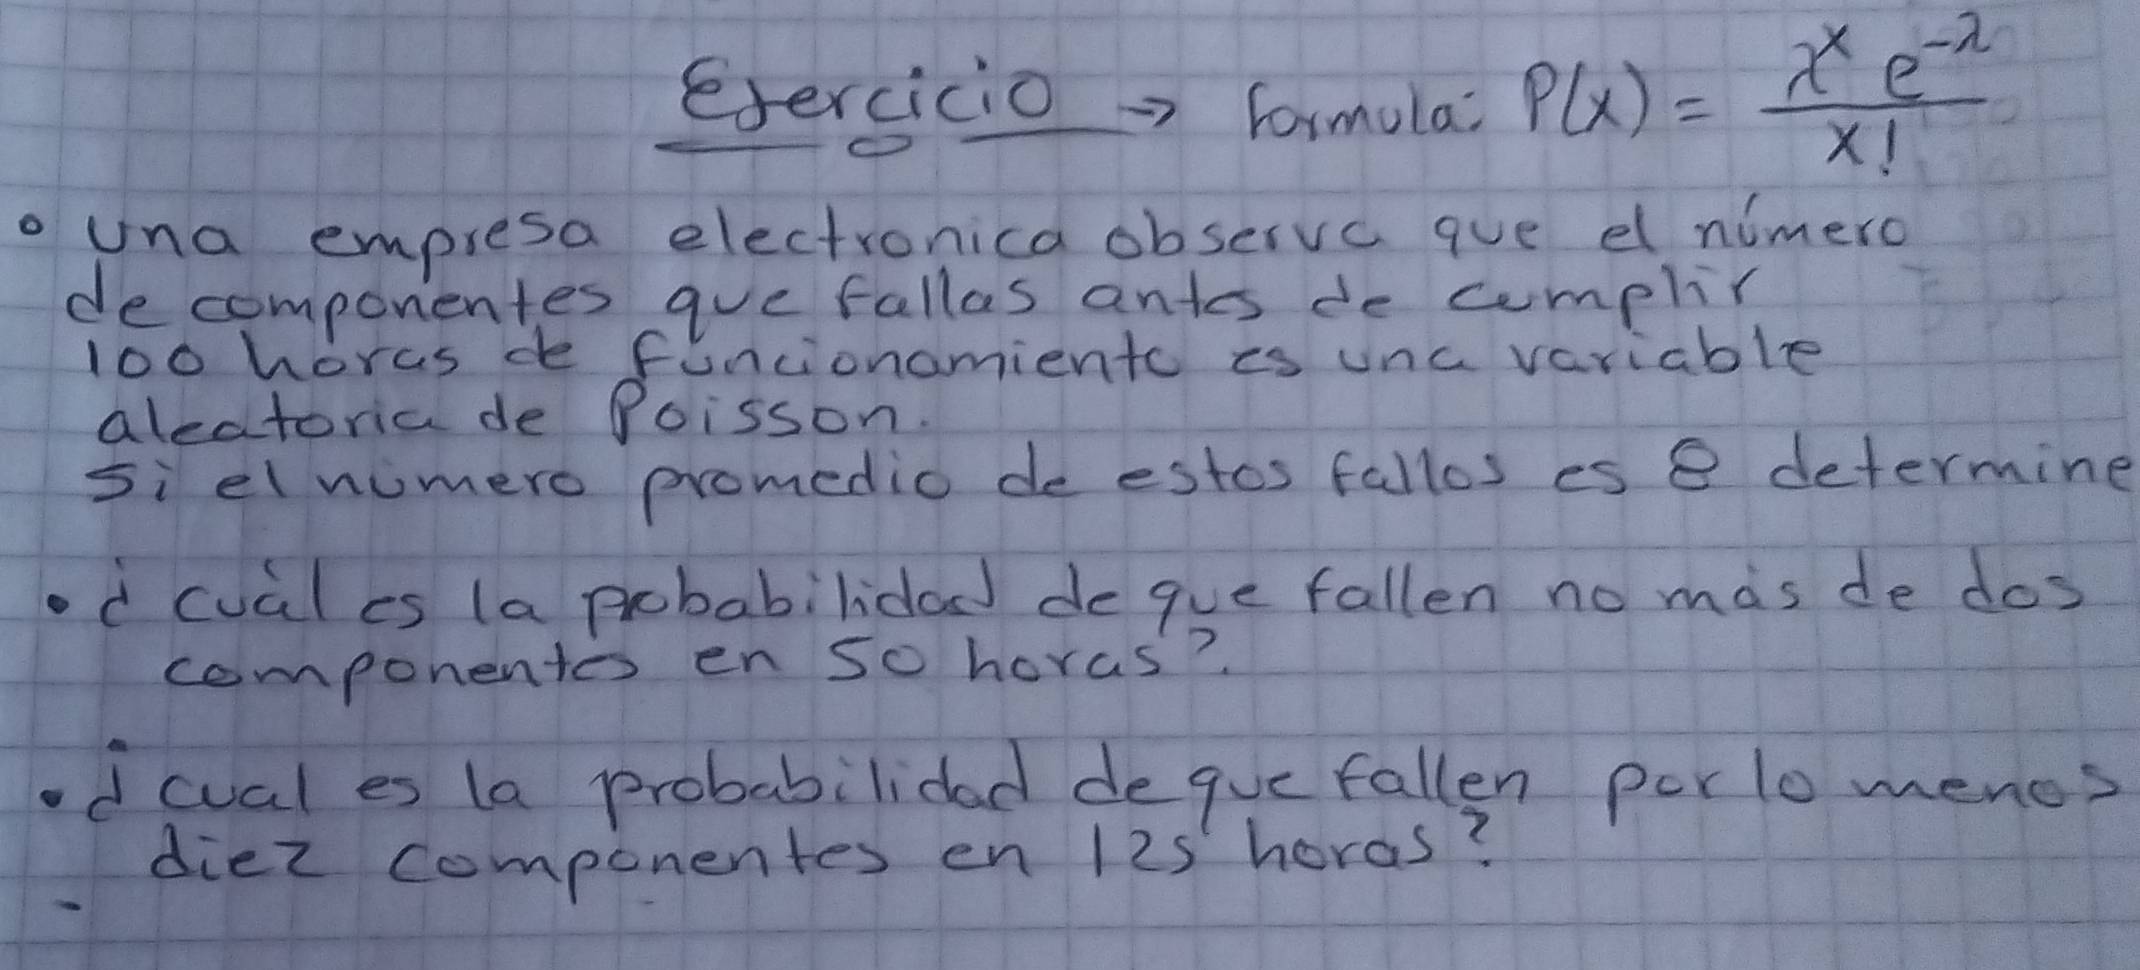 Ejercicio → Formula: P(x) = λ^x e^-λ / x!
• Una empresa electronica observa que el número
de componentes que fallas antes de cumplir
100 horas de funcionamiento es una variable
aleatoria de Poisson.
si el número promedio de estos fallos es 8 determine
• ¿cuál es la probabilidad de que fallen no más de dos
componentes en 50 horas?
• ¿cual es la probabilidad de que fallen por lo menos
diez componentes en 125 horas?